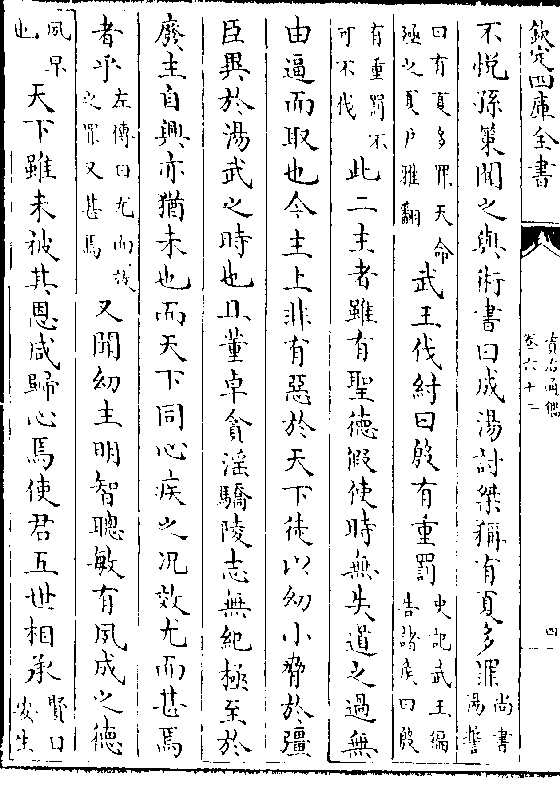 欽定四庫全書
資治通鑑
卷六十二
四
不悦孫策聞之與術書曰成湯討桀稱有夏多罪尚書湯誓
曰有夏多罪天命殛之夏戸雅翻武王伐紂曰殷有重罰史記武王徧告諸侯曰殷
有重罰不可不伐此二主者雖有聖德假使時無失道之過無
由逼而取也今主上非有惡於天下徒以幼小脅於彊
臣異於湯武之時也且董卓貪淫驕陵志無紀極至於
廢主自興亦猶未也而天下同心疾之况效尤而甚焉
者乎左傳曰尤而效之罪又甚焉又聞幼主明智聰敏有夙成之德
夙早也天下雖未被其恩咸歸心焉使君五世相承賢曰安生